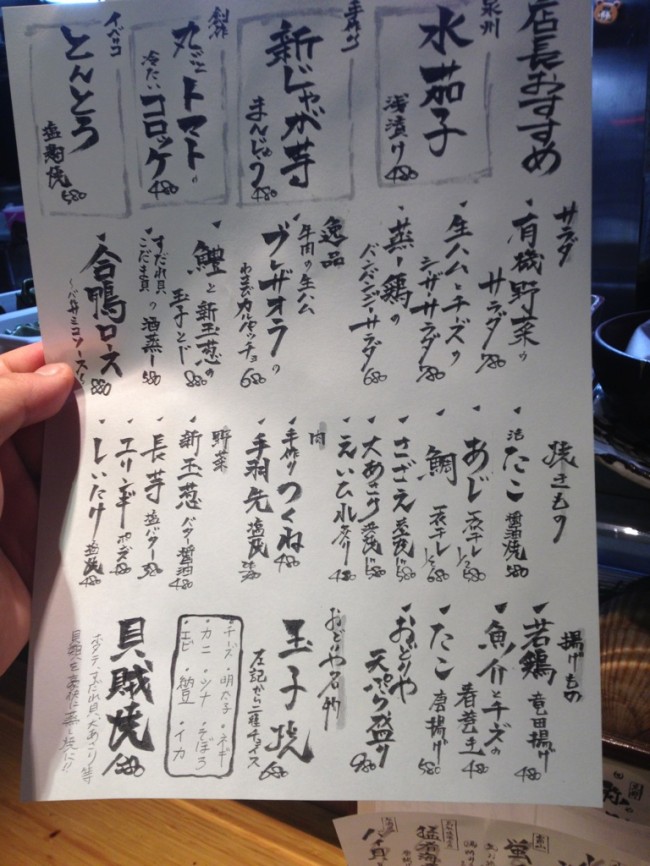 店長おすすめ
泉州
水茄子
浅漬け 480
手作り
新じゃが芋
まんじゅう 480
創作
丸ごとトマトの
冷たいコロッケ 480
イベリコ
とんとろ
塩麹焼 580
サラダ
有機野菜の
サラダ 780
生ハムとチーズの
シーザーサラダ 780
蒸し鶏の
バンバンジーサラダ 680
逸品
牛肉の生ハム
ブレザオラの
わさびカルパッチョ 680
鱧と新玉葱の
玉子とじ 880
すだれ貝
こだま貝
の酒蒸し 580
合鴨ロース
〜バルサミコソース〜 880
焼きもの
活たこ 醤油焼 580
あじ 一夜干し 1/2 580
鯛 一夜干し 1/2 680
さざえ 壺焼 580
大あさり 580
えいひれ 炙り 480
肉
手作りつくね 480
手羽先 塩焼
野菜
新玉葱 バター醤油 480
長芋 塩バター 380
エリンギ 480
しいたけ 塩焼 480
揚げもの
若鶏 竜田揚げ 480
魚介とチーズの
春巻き 480
たこ 唐揚げ 580
おどりや
天ぷら盛り 980
おどりや名物
玉子焼
左記から一種チョイス 680
チーズ・明太子・ネギ
・カニ・ツナ・そぼろ
・エビ・納豆・イカ
貝賊焼 1880
ホタテ、すだれ貝、大あさり等
貝類を豪快に蒸し焼に!!